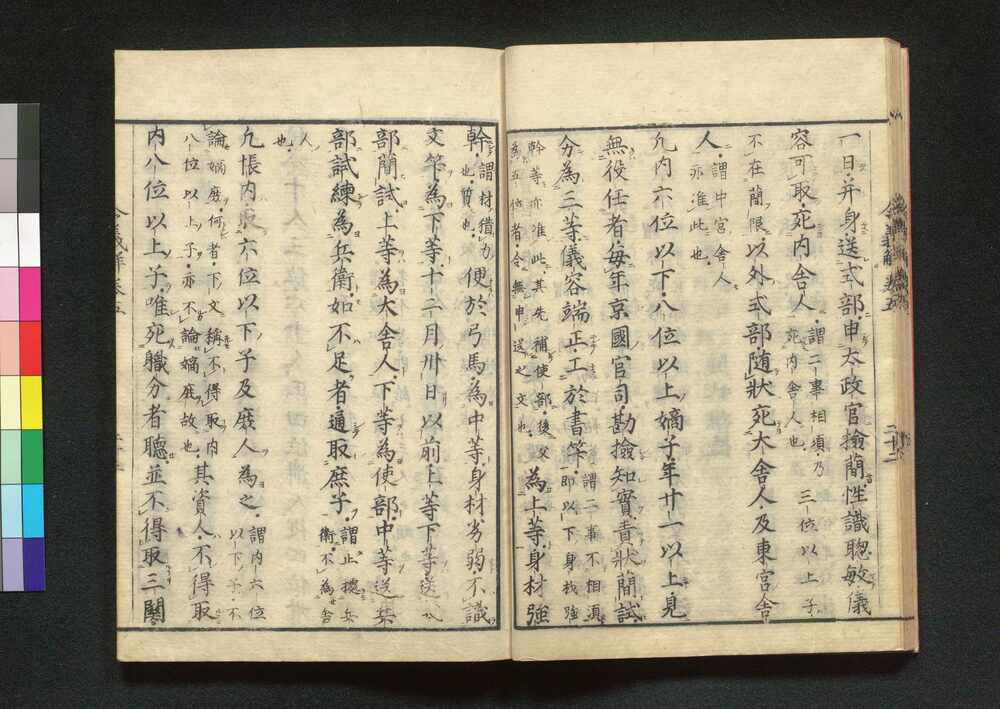 一日并身送式部申太政官撿簡性識聰敏儀
容可取充内舍人謂二事相須乃
充内舍人也三位以上子
不在簡限以外式部随狀充大舍人及東宮舍
人謂中宮舍人
亦准此也
凡内六位以下八位以上嫡子年廿一以上見
無役任者毎年京國官司勘撿知實責狀簡試
分為三等儀容端正工於書筭謂二事不相須
即以下身材強
幹等亦准此其先補使部後父
為五位者今無申送之文也為上等身材強
幹謂材借力
也幹了也便於弓馬為中等身材劣弱不識
文筭為下等十二月卅日以前上等下等送式
部簡試上等為大舍人下等為使部中等送兵
部試練為兵衛如不足者通取庶子謂止擾兵
衛不為舍
人
也
凡帳内取六位以下子及庶人為之謂内六位
以下子不
論嫡庶何者下文稱不得取内
八位以上子亦不論嫡庶故也其資人不得取
内八位以上子唯充職分者聽並不得取三關